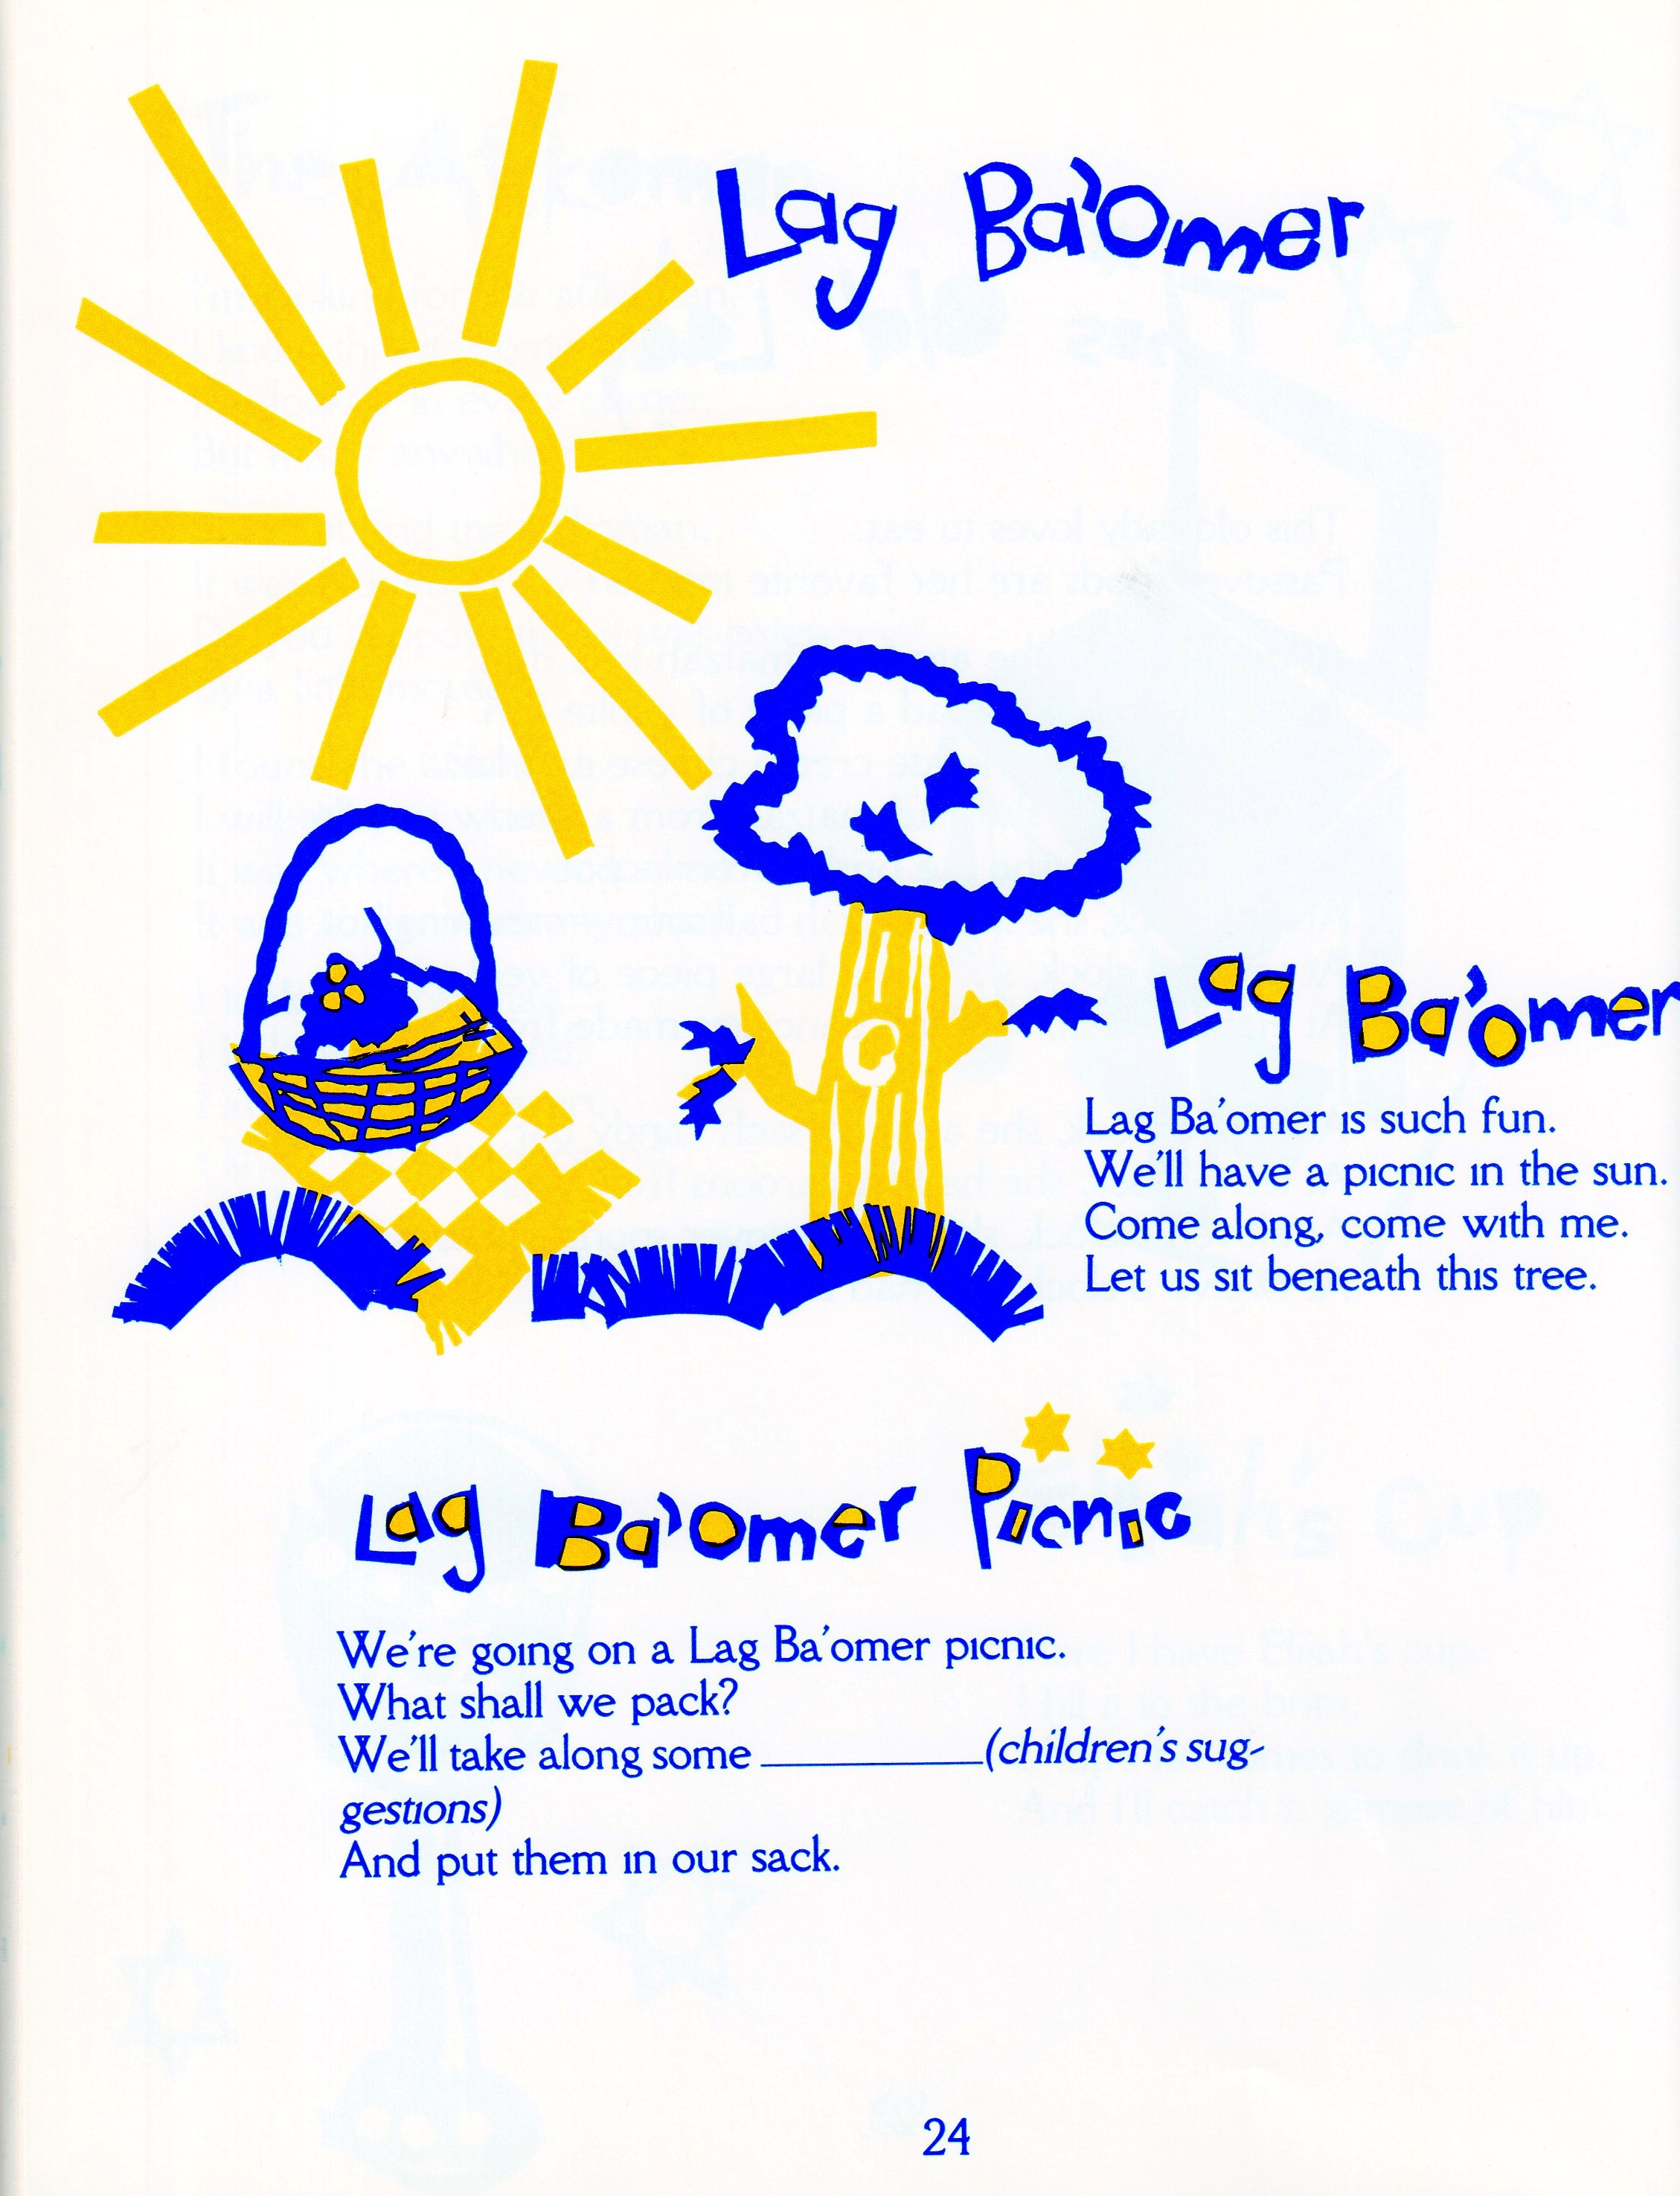 Lag Ba'Omer
Lag Ba'omer
Lag Ba'omer is such fun.
We'll have a picnic in the sun.
Come along, come with me.
Let us sit beneath this tree.
Lag Ba'omer Picnic
We're going on a Lag Ba'omer picnic.
What shall we pack?
We'll take along some __________(children's sug-
gestions)
And put them in our sack.
24